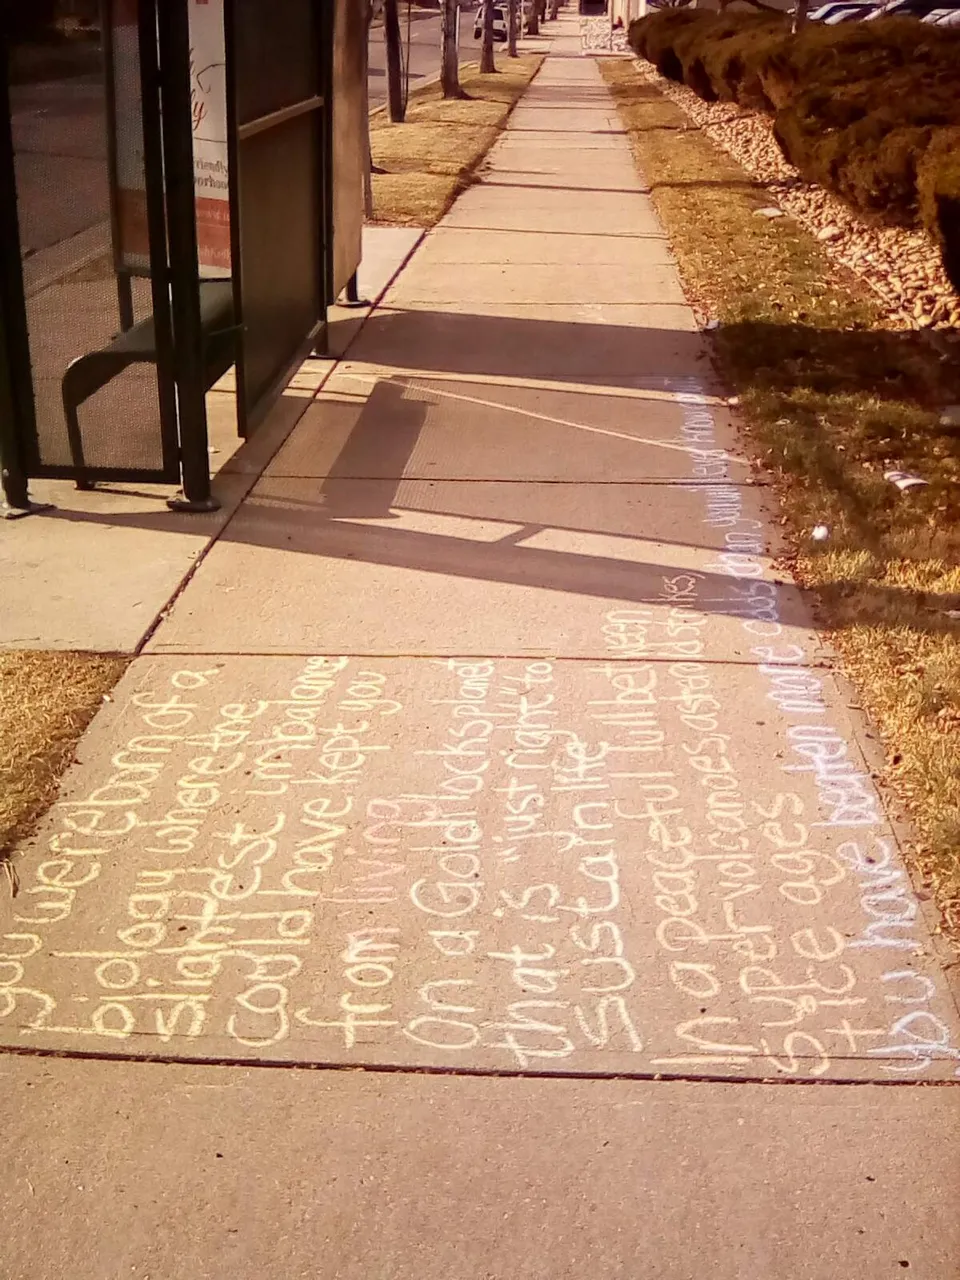 you were born of a
biology where the
slightest imbalance
could have kept you
from "living"
On a Goldilocks planet
that is "just right" to
sustain life
In a peaceful lull between
super volcanoes, asteroid strikes,
+ ice ages
you have beaten more odds than you will ever know
friendly